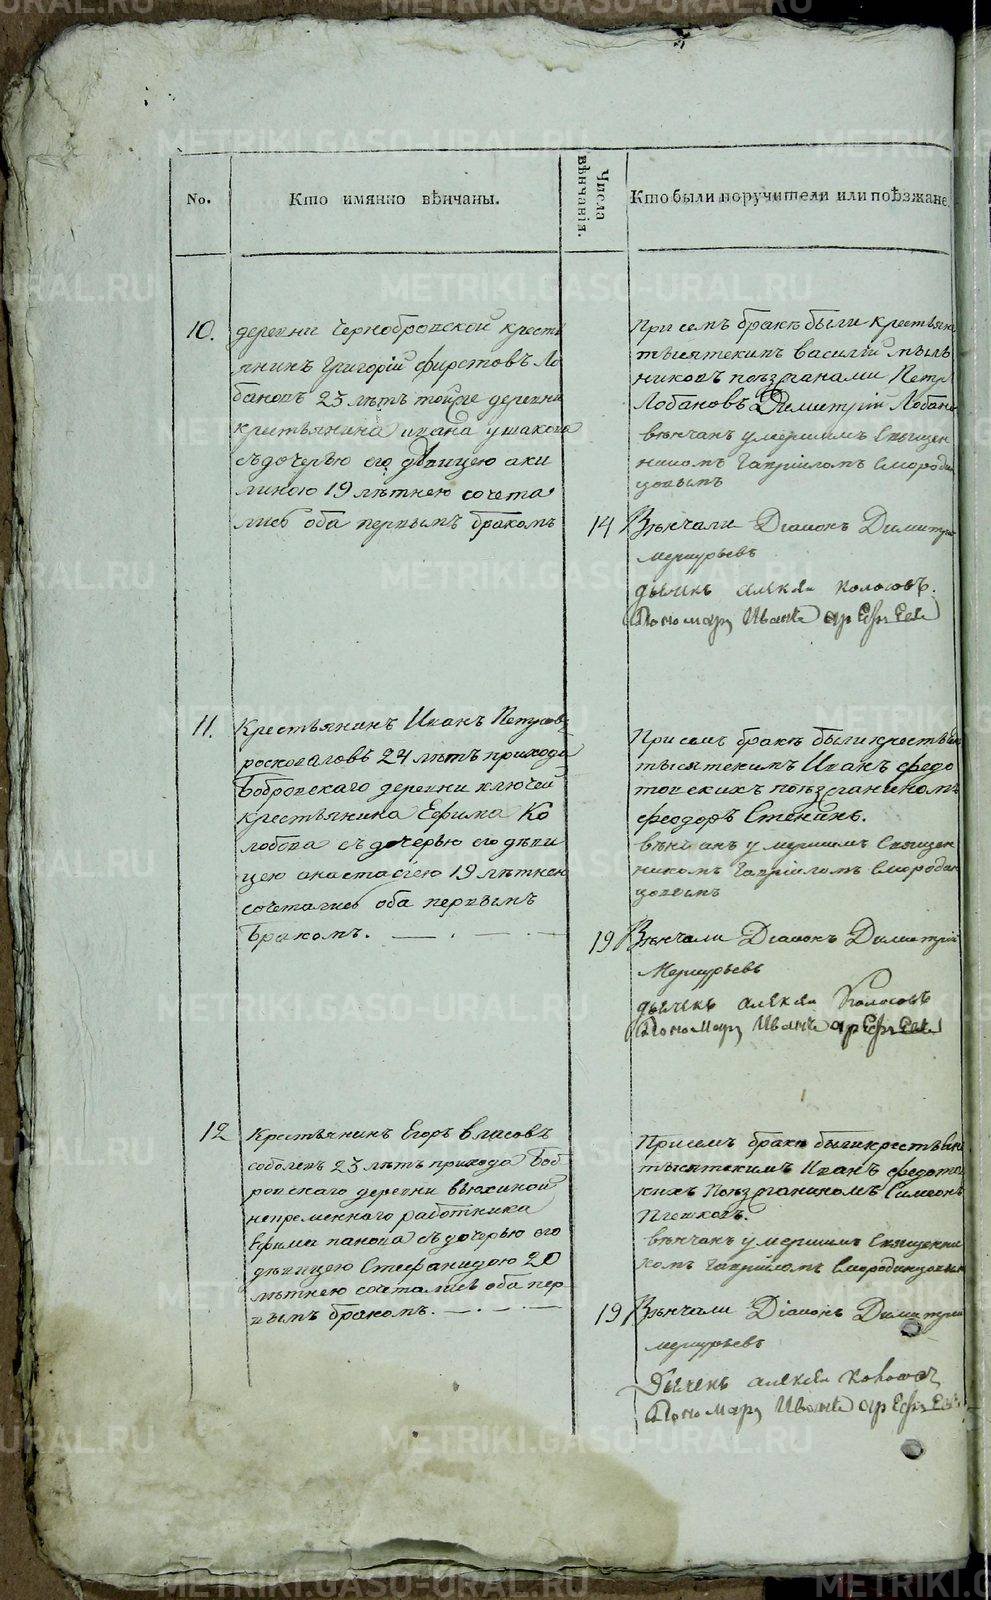 No.
Кто имянно вѣнчаны.
Числа вѣнчанія.
Кто были поручители или поѣзжане.
10.
деревни Чернобровской кресть
янинъ Григорій Фирстовъ Ло
бановъ 23 лѣтъ тойже деревни
крестьянина Ивана Ушакова
съ дочерью его дѣвицею Аки
линою 19 лѣтнею сочета
лись оба первымъ бракомъ
При семъ бракѣ были крестьяна
тысятскимъ Василій Мыль
никовъ поѣзжанами Петръ
Лобановъ Димитрій Лобано
вѣнчанъ умершимъ Священ
никомъ Гавріиломъ Смородин
цовымъ
14
Вѣнчали Діаконъ Димитрій
Меркурьевъ
дьячекъ Алексѣй Колосовъ.
Пономарь Иванъ
11.
Крестьянинъ Иванъ Петровъ
лѣтъ прихода
Бобровскаго деревни Ключей
крестьянина Ефима Ко
лобова съ дочерью его дѣви
цею Анастасіею 19 лѣтнею
сочетались оба первымъ
бракомъ.
При семъ бракѣ были крестьяна
тысятскимъ Иванъ Федо
товскихъ поѣзжаниномъ
Феодоръ Стенинъ.
вѣнчанъ умершимъ Священ
никомъ Гавріиломъ Смородин
цовымъ
19
Вѣнчали Діаконъ Димитрій
Меркурьевъ
дьячекъ Алексѣй Колосовъ
Пономарь Иванъ
12
Крестьянинъ Егоръ Власовъ
Соболевъ 23 лѣтъ прихода Боб
ровскаго деревни Вьюхиной
непременнаго работника
Ефима Панова съ дочерью его
дѣвицею Стефанидою 20
лѣтнею сочетались оба пер
вымъ бракомъ.
При семъ бракѣ были крестьяна
тысятскимъ Иванъ Федотов
скихъ поѣзжаниномъ Симеонъ
Плешковъ.
вѣнчанъ умершимъ Священни
комъ Гавріиломъ Смородинцовым
19
Вѣнчали Діаконъ Димитрій
Меркурьевъ
Дьячекъ Алексѣй Колосовъ
Пономарь Иванъ
METRIKI.GASO-URAL.RU